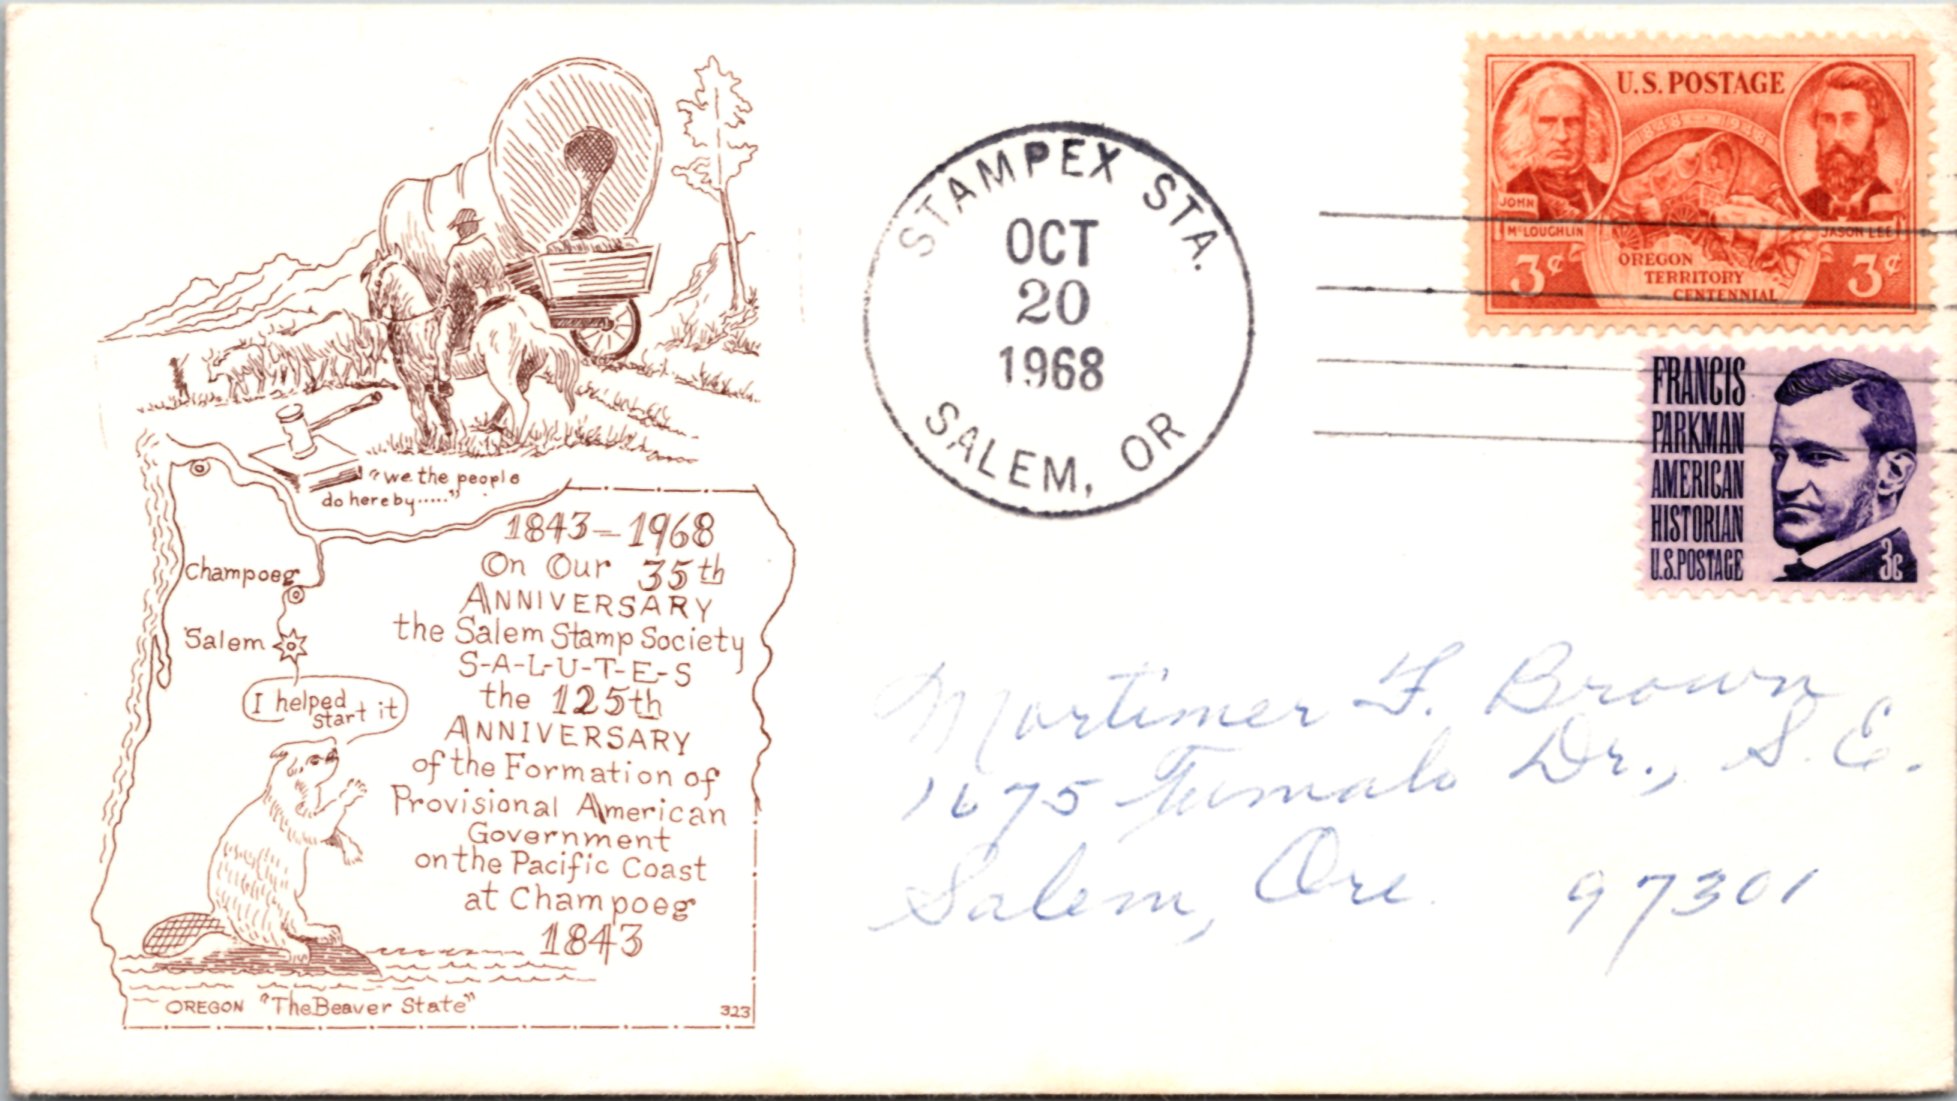 "we the people
do hereby....."
1843-1968
On Our 35th
ANNIVERSARY
the Salem Stamp Society
S-A-L-U-T-E-S
the 125th
ANNIVERSARY
of the Formation of
Provisional American
Government
on the Pacific Coast
at Champoeg
1843
Champoeg
Salem
I helped
start it
OREGON "The Beaver State"
323
STAMPEX STA.
OCT
20
1968
SALEM, OR
U.S. POSTAGE
1848 1948
JOHN
McLOUGHLIN
JASON LEE
3¢
OREGON
TERRITORY
CENTENNIAL
3¢
FRANCIS
PARKMAN
AMERICAN
HISTORIAN
U.S.POSTAGE
3c
Mortimer F. Brown
1675 Tumalo Dr., S.E.
Salem, Ore. 97301